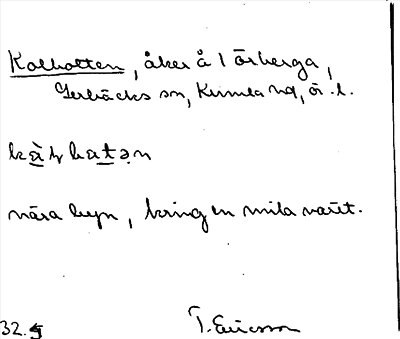 Kolbotten, åker å 1 Örberga,
Lerbäcks sn, Kumla hd, ör. l.
nära byn, kring en mila varit.
32.
T. Ericsson